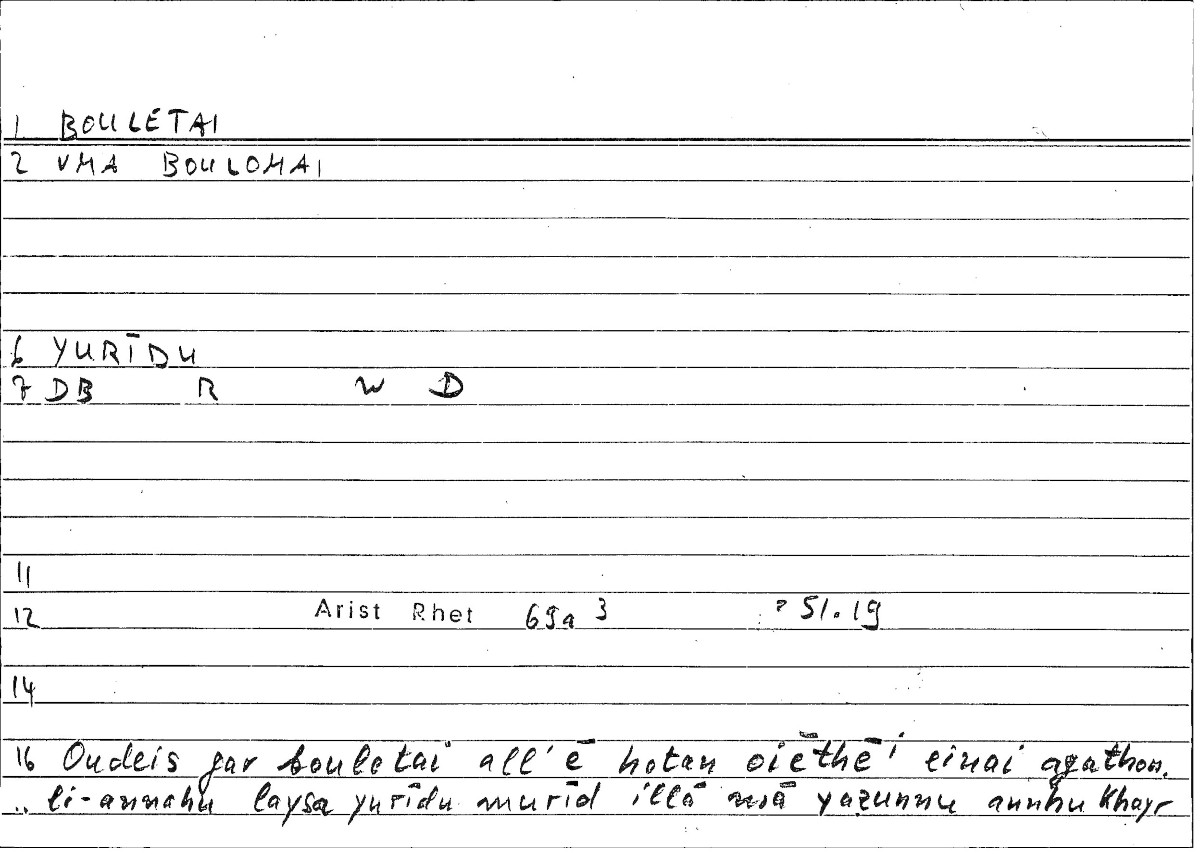 1 BOULETAI
2 VMA BOULOMAI
6 YURĪDU
7 DB R W D
11
12 Arist Rhet 69a 3 : 51.19
14
16 Oudeis gar bouletai all' ē hotan oiēthēi einai agathon.
.. li-annahu laysa yurīdu murīd illā mā yaẓunnu annhu khayr